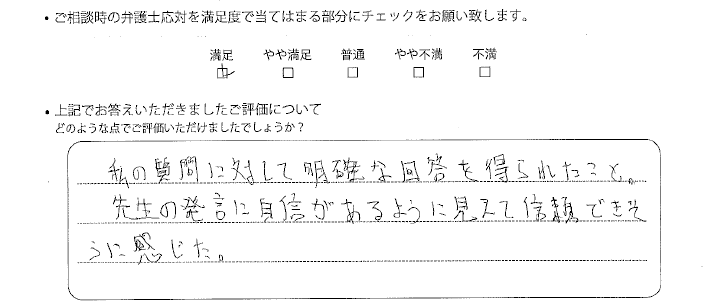 ・ご相談時の弁護士応対を満足度で当てはまる部分にチェックをお願い致します。
満足 やや満足 普通 やや不満 不満
・上記でお答えいただきましたご評価について
どのような点でご評価いただけましたでしょうか？
私の質問に対して明確な回答を得られたこと。
先生の発言に自信があるように見えて信頼できそ
うに感じた。